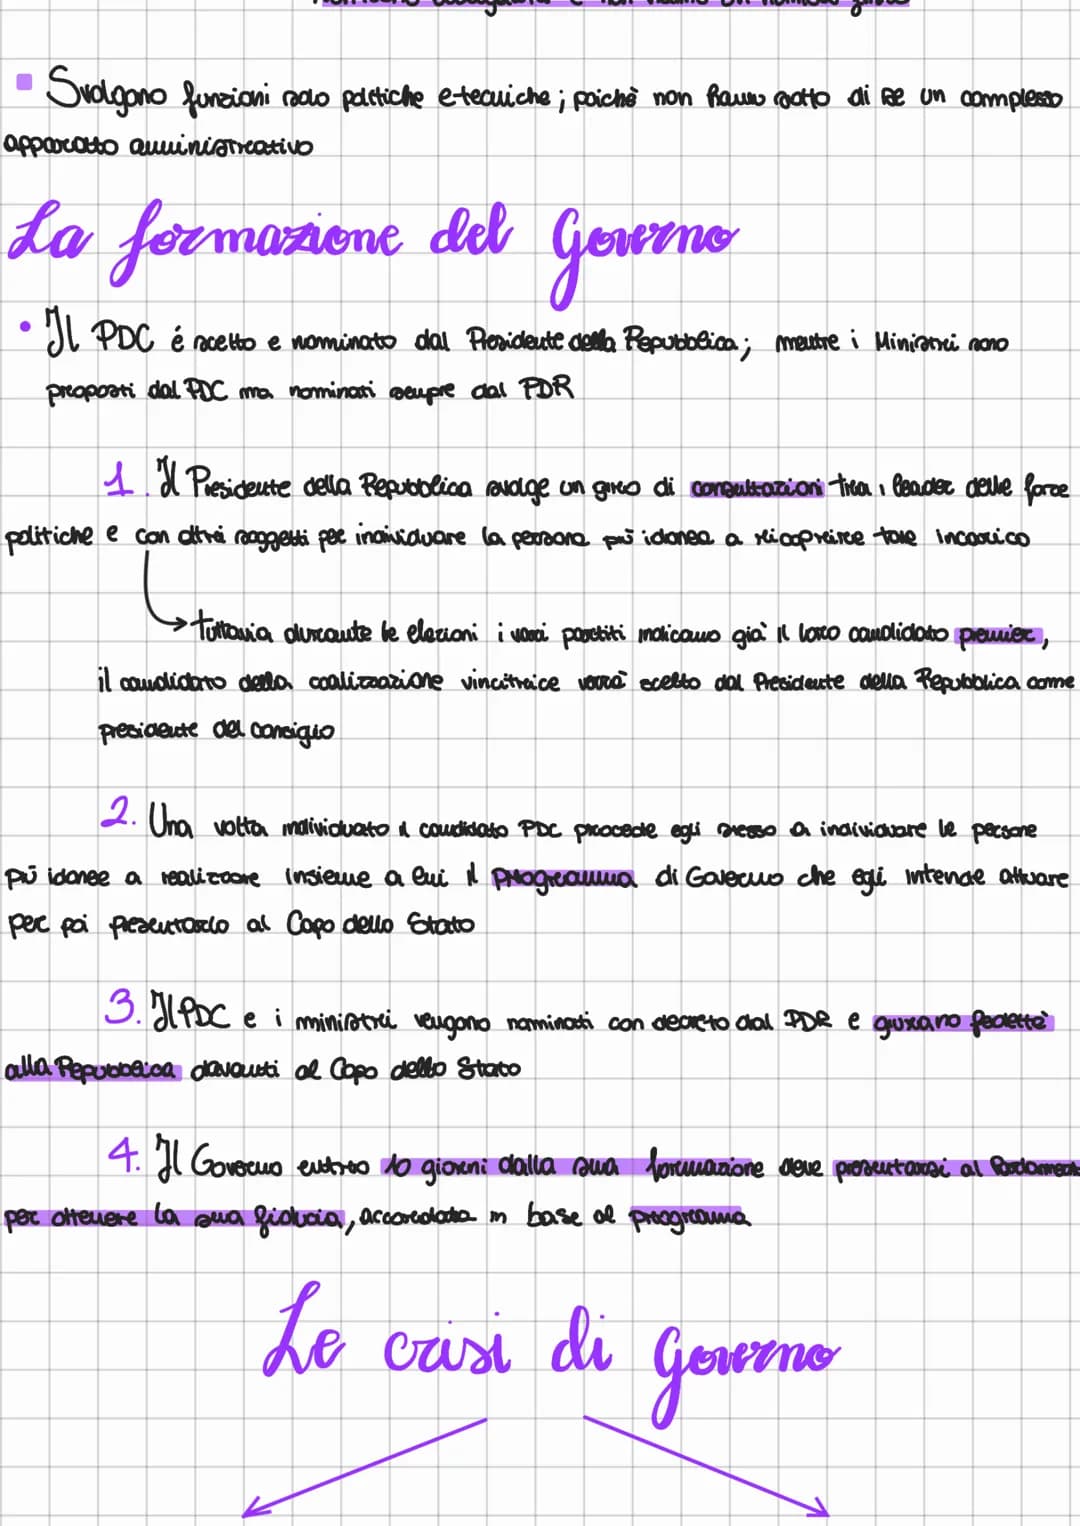 Svolgono funzioni solo politiche e tecniche; poichè non hanno sotto di se un complesso
apparato amministrativo
La formazione del Governo
Il PDC é scelto e nominato dal Presidente della Repubblica; mentre i Ministri sono
proposti dal PDC ma nominati sempre dal PDR
1. Il Presidente della Repubblica svolge un giro di consultazioni tra i leader delle forze
politiche e con altri soggetti per individuare la persona più idonea a ricoprire tale incarico
tuttavia durante le elezioni i vari partiti indicano già il loro candidato premier,
il candidato della coalizzazione vincitrice verrà scelto dal Presidente della Repubblica come
presidente del consiglio
2. Una volta individuato il candidato PDC procede egli stesso a individuare le persone
più idonee a realizzare insieme a lui il programma di Governo che egli intende attuare
per poi presentarlo al Capo dello Stato
3. Il PDC e i ministri vengono nominati con decreto dal PDR e giurano fedeltà
alla Repubblica davanti al Capo dello Stato
4. Il Governo entro 10 giorni dalla sua formazione deve presentarsi al Parlamento
per ottenere la sua fiducia, accordata in base al programma
Le crisi di Governo